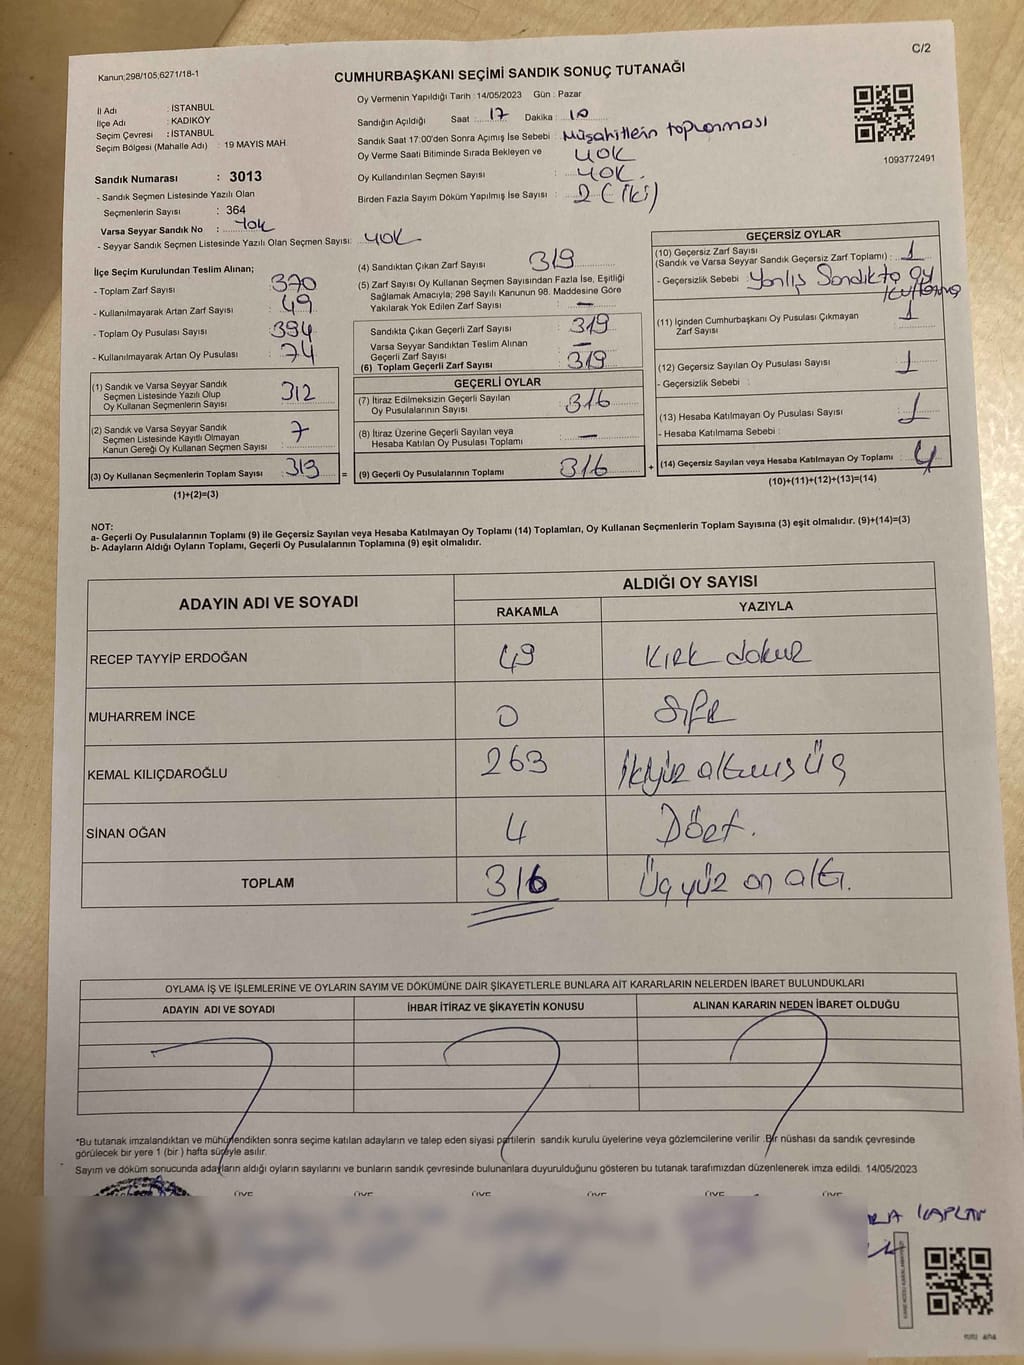 C/2
Kanun;298/105,6271/18-1
CUMHURBAŞKANI SEÇİMİ SANDIK SONUÇ TUTANAĞI
Oy Vermenin Yapıldığı Tarih : 14/05/2023 Gün : Pazar
İl Adı : İSTANBUL
İlçe Adı : KADIKÖY
Seçim Çevresi : İSTANBUL
Seçim Bölgesi (Mahalle Adı) : 19 MAYIS MAH.
Sandığın Açıldığı Saat : 17 Dakika : 10
Sandık Saat 17:00'den Sonra Açımış İse Sebebi : Müşahitlerin toplanması
Oy Verme Saati Bitiminde Sırada Bekleyen ve YOK
Oy Kullandırılan Seçmen Sayısı : YOK.
Birden Fazla Sayım Döküm Yapılmış İse Sayısı : 2 (iki)
1093772491
Sandık Numarası : 3013
- Sandık Seçmen Listesinde Yazılı Olan
Seçmenlerin Sayısı : 364
Varsa Seyyar Sandık No : YOK
- Seyyar Sandık Seçmen Listesinde Yazılı Olan Seçmen Sayısı: YOK
İlçe Seçim Kurulundan Teslim Alınan;
- Toplam Zarf Sayısı : 370
- Kullanılmayarak Artan Zarf Sayısı : 49
- Toplam Oy Pusulası Sayısı : 394
- Kullanılmayarak Artan Oy Pusulası : 74
(1) Sandık ve Varsa Seyyar Sandık
Seçmen Listesinde Yazılı Olup
Oy Kullanan Seçmenlerin Sayısı : 312
(2) Sandık ve Varsa Seyyar Sandık
Seçmen Listesinde Kayıtlı Olmayan
Kanun Gereği Oy Kullanan Seçmen Sayısı : 7
(3) Oy Kullanan Seçmenlerin Toplam Sayısı : 319 =
(1)+(2)=(3)
(4) Sandıktan Çıkan Zarf Sayısı : 319
(5) Zarf Sayısı Oy Kullanan Seçmen Sayısından Fazla İse, Eşitliği
Sağlamak Amacıyla; 298 Sayılı Kanunun 98. Maddesine Göre
Yakılarak Yok Edilen Zarf Sayısı : —
Sandıkta Çıkan Geçerli Zarf Sayısı : 319
Varsa Seyyar Sandıktan Teslim Alınan
Geçerli Zarf Sayısı : —
(6) Toplam Geçerli Zarf Sayısı : 319
GEÇERLİ OYLAR
(7) İtiraz Edilmeksizin Geçerli Sayılan
Oy Pusulalarının Sayısı : 316
(8) İtiraz Üzerine Geçerli Sayılan veya
Hesaba Katılan Oy Pusulası Toplamı : —
(9) Geçerli Oy Pusulalarının Toplamı : 316 +
GEÇERSİZ OYLAR
(10) Geçersiz Zarf Sayısı
(Sandık ve Varsa Seyyar Sandık Geçersiz Zarf Toplamı) : 1
- Geçersizlik Sebebi : Yanlış Sandıkta oy
kullanma
(11) İçinden Cumhurbaşkanı Oy Pusulası Çıkmayan
Zarf Sayısı : 1
(12) Geçersiz Sayılan Oy Pusulası Sayısı : 1
- Geçersizlik Sebebi :
(13) Hesaba Katılmayan Oy Pusulası Sayısı : 1
- Hesaba Katılmama Sebebi :
(14) Geçersiz Sayılan veya Hesaba Katılmayan Oy Toplamı : 4
(10)+(11)+(12)+(13)=(14)
NOT:
a- Geçerli Oy Pusulalarının Toplamı (9) ile Geçersiz Sayılan veya Hesaba Katılmayan Oy Toplamı (14) Toplamları, Oy Kullanan Seçmenlerin Toplam Sayısına (3) eşit olmalıdır. (9)+(14)=(3)
b- Adayların Aldığı Oyların Toplamı, Geçerli Oy Pusulalarının Toplamına (9) eşit olmalıdır.
ADAYIN ADI VE SOYADI
ALDIĞI OY SAYISI
RAKAMLA YAZIYLA
RECEP TAYYİP ERDOĞAN 49 Kırk dokuz
MUHARREM İNCE 0 Sıfır
KEMAL KILIÇDAROĞLU 263 İkiyüz altmış üç
SİNAN OĞAN 4 Dört.
TOPLAM 316 Üçyüz on altı.
OYLAMA İŞ VE İŞLEMLERİNE VE OYLARIN SAYIM VE DÖKÜMÜNE DAİR ŞİKAYETLERLE BUNLARA AİT KARARLARIN NELERDEN İBARET BULUNDUKLARI
ADAYIN ADI VE SOYADI İHBAR İTİRAZ VE ŞİKAYETİN KONUSU ALINAN KARARIN NEDEN İBARET OLDUĞU
*Bu tutanak imzalandıktan ve mühürlendikten sonra seçime katılan adayların ve talep eden siyasi partilerin sandık kurulu üyelerine veya gözlemcilerine verilir .Bir nüshası da sandık çevresinde
görülecek bir yere 1 (bir ) hafta süreyle asılır.
Sayım ve döküm sonucunda adayların aldığı oyların sayılarını ve bunların sandık çevresinde bulunanlara duyurulduğunu gösteren bu tutanak tarafımızdan düzenlenerek imza edildi. 14/05/2023
ÜYE ÜYE ÜYE ÜYE ÜYE ÜYE
KAPLAN